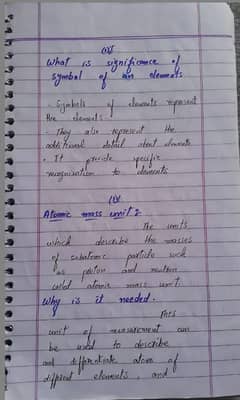 (iii)
What is significance of
symbol of an elements
- Symbols of elements represent
the elements.
- They also represent the
additional detail about elements
• It provide specific
recognisation to elements
(iv)
Atomic mass unit:
The units
which describe the masses
of subatomic particle such
as proton and neutron
called atomic mass unit.
Why is it needed.
This
unit of measurement can
be used to describe
and differentiate atom of
different elements, and